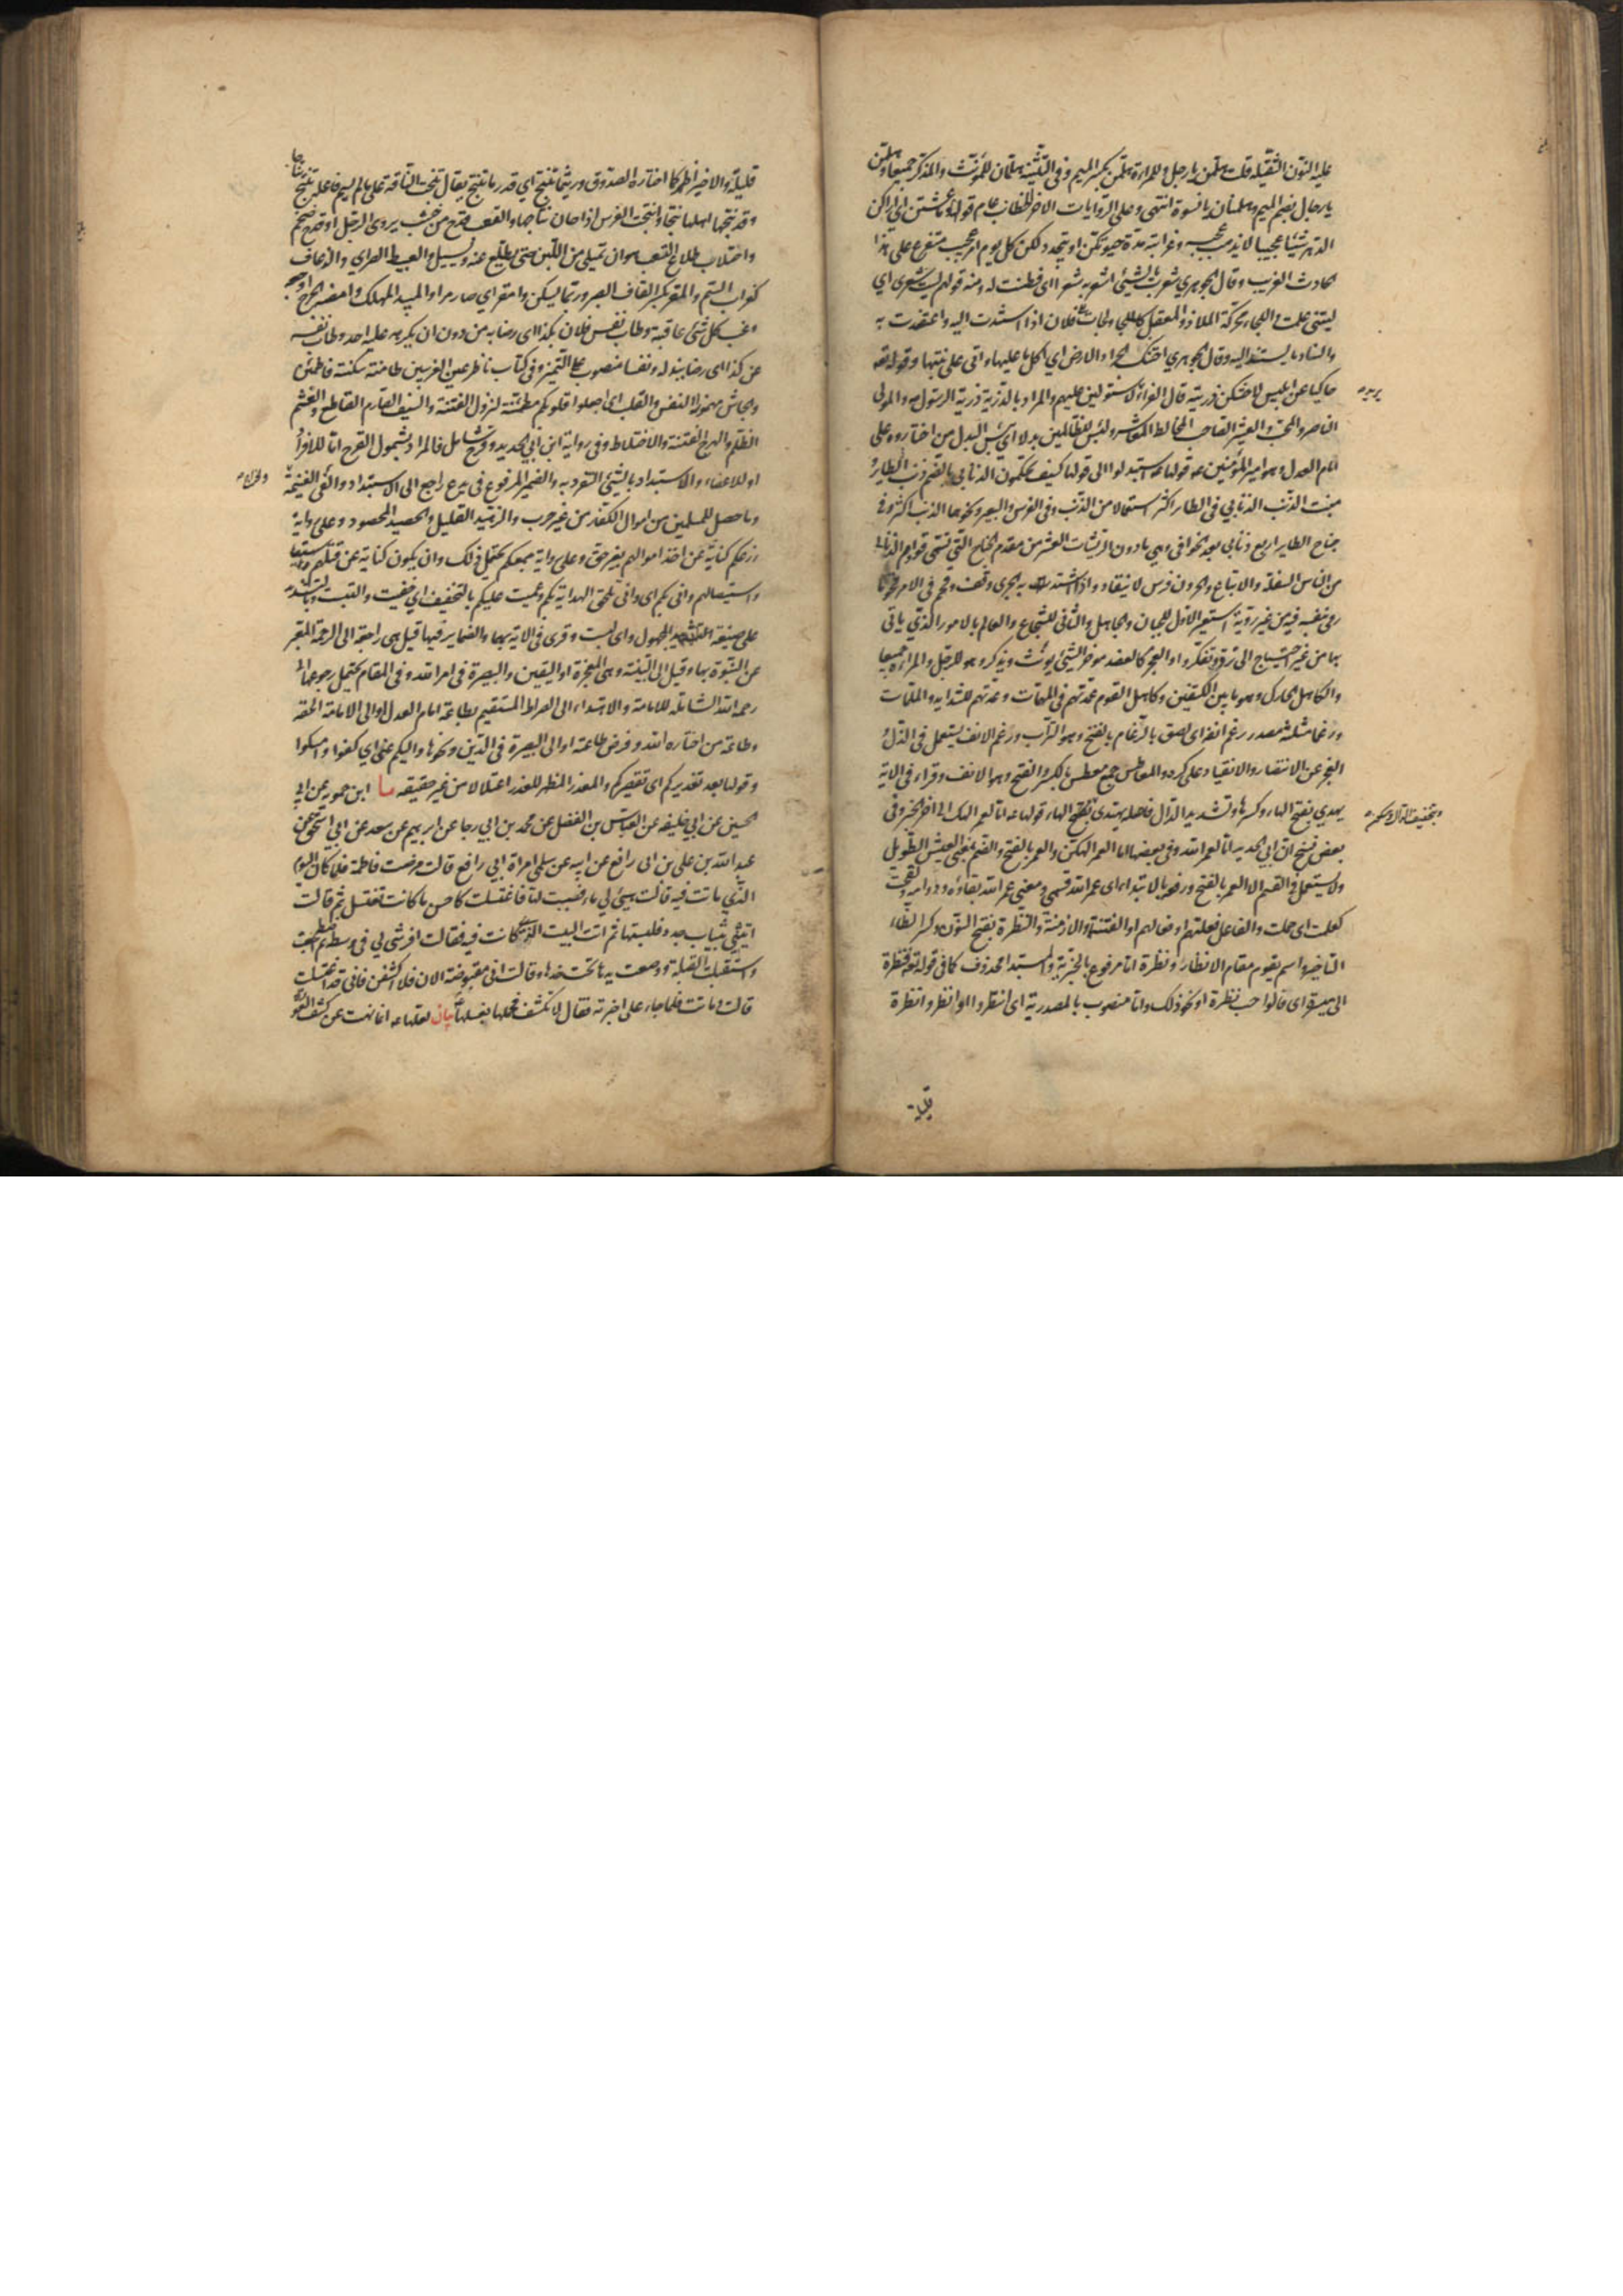 عليه النون الثقيلة قلت هلمن يا رجل وللمراة هلمن بكسر الميم وفى التثنية هلمان للمؤنث والمذكر جميعا وهلمن
يا رجال بضم الميم وهلمنان يا نسوة انتهى وعلى الروايات الاخر الخطاب عام قولها وما عشتن اى اراكن
الدهر شيئا عجيبا لا يذهب عجبه وغرابته مدة حيوتكن او يتجدد لكن كل يوم امر عجيب متفرع على هذا
الحادث الغريب وقال الجوهري شعرت بالشيئ اشعر به شعرا اى فطنت له ومنه قولهم ليت شعرى اى
ليتنى علمت واللجاء محركة الملاذ والمعقل كالملجا ولجات الى فلان اذا استندت اليه واعتضدت به
والسناد ما يستند اليه وقال الجوهري احتنك الجراد الارض اي اكل ما عليها واتى على نبتها وقوله تعه
حاكيا عن ابليس لاحتنكن ذريته قال الفراء لاستولين عليهم والمراد بالذرية ذرية الرسول ص والمولى
الناصر والمحب والعشير الصاحب المخالط المعاشر ولبئس للظالمين بدلا اى بئس البدل من اختاروه على
امام العدل وهو امير المؤمنين عه قولها عه استبدلوا الى قولها كيف تحكمون الذنابى بالضم ذنب الطاير و
منبت الذنب والذنابى فى الطاير اكثر استعمالا من الذنب وفى الفرس والبعير ونحوها الذنب اكثر وفى
جناح الطاير اربع ذنابى بعد الخوافى وهي ما دون الريشات العشر من مقدم الجناح التى تسمى قوادم والذنابى
من الناس السفلة والاتباع والحرون فرس لا ينقاد واذا اشتد به الجرى وقف وقحم فى الامر قحوما
رمى بنفسه فيه من غير روية استعير الاول للجبان والجاهل والثانى للشجاع والعالم بالامور الذي ياتى
بها من غير احتياج الى ترو وتفكر والعجز كالعضد موخر الشيئ يؤنث ويذكر وهو للرجل والمراة جميعا
والكاهل الحارك وهو ما بين الكتفين وكاهل القوم عمدتهم فى المهمات وعدتهم للشدايد والملمات
ورغما مثلثة مصدر رغم انفه اى لصق بالرغام بالفتح وهو التراب ورغم الانف يستعمل فى الذل و
العجز عن الانتصار والانقياد على كره والمعاطس جمع معطس بالكسر والفتح وهو الانف وقراء فى الاية
يهدي بفتح الهاء وكسرها وتشديد الدال فاصله يهتدى بفتح الهاء قولها عه اما لعمر الهك الى اخر الخبر وفى
بعض نسخ ابن ابي الحديد اما لعمر الله وفى بعضها اما لعمر الهكن والعمر بالفتح والضم بمعنى العيش الطويل
ولا يستعمل فى القسم الا العمر بالفتح ورفعه بالابتداء اى عمر الله قسمى ومعنى عمر الله بقاؤه ودوامه ولقحت
كعلمت اى حملت والفاعل فعلتهم او فعالهم او الفتنة والازمنة والنظرة بفتح النون وكسر الظاء
التاخير واسم يقوم مقام الانظار ونظرة اما مرفوع بالخبرية والمبتدا محذوف كما فى قوله تعه فنظرة
الى ميسرة اى فالواجب نظرة او نحو ذلك واما منصوب بالمصدرية اى انتظروا او انظروا نظرة
قليلة
يريد
بتخفيف الدال وسكون
قليلة والاخير اظهر كما اختاره الصدوق وريثما تنتج اي قدر ما تنتج يقال نتجت الناقة على ما لم يسم فاعله تنتج نتاجا
وقد نتجها اهلها نتجا وانتجت الفرس اذا حان نتاجها والقعب قدح من خشب يروى الرجل او قدح ضخم
واحتلاب طلاع القعب هو ان تمتلى من اللبن حتى يطلع عنه ويسيل والعبيط الطرى والذعاف
كغراب السم والمقر بكسر القاف الصبر وربما يسكن وامقر اي صار مرا والمبيد المهلك وامضه الجرح اوجعه
وغب كل شئ عاقبته وطاب نفس فلان بكذا اى رضا به من دون ان يكرهه عليه احد وطاب نفسه
عن كذا اى رضا ببذله ونفسا منصوب على التميز وفى كتاب ناظر عين الغربيين طامنته سكنته فاطمئن
والجاش مهموزا النفس والقلب اى اجعلوا قلوبكم مطمئنة لنزول الفتنة والسيف الصارم القاطع والغشم
الظلم والهرج الفتنة والاختلاط وفى رواية ابن ابي الحديد وقرح شامل فالمراد بشمول القرح اما للافراد
او للاعضاء والاستبداد بالشيئ التفرد به والضمير المرفوع فى يدع راجع الى الاستبداد والفئ الغنيمة
وما حصل للمسلمين من اموال الكفار من غير حرب والزهيد القليل والحصيد المحصود وعلى رواية
زرعكم كناية عن اخذ اموالهم بغير حق وعلى رواية جمعكم يحتمل ذلك وان يكون كناية عن قتلهم
واستيصالهم وانى بكم اى وانى تلحق الهداية بكم وعميت عليكم بالتخفيف اى خفيت والتبست وبالتشديد
على صيغة المجهول اى لبست وقرى فى الاية بهما والضماير فيها قيل هى راجعة الى الرحمة المعبر
عن النبوة بها وقيل الى البينة وهى المعجزة او اليقين والبصيرة فى امر الله وفى المقام يحتمل رجوعها الى
رحمة الله الشاملة للامامة والاهتداء الى الصراط المستقيم بطاعة امام العدل او الى الامامة الحقه
وطاعة من اختاره الله وفرض طاعته او الى البصيرة فى الدين ونحوها واليكم عنى اي كفوا وامسكوا
وقولها بعد تعذيركم اى تقصيركم والمعذر المظهر للعذر اعتلالا من غير حقيقه ما ابن حمويه عن ابي
الحسين عن ابي خليفه عن العباس بن الفضل عن محمد بن ابي رجا عن ابرهيم بن سعد عن ابي اسحق عن
عبد الله بن على بن ابى رافع عن ابيه عن سلمى امراة ابي رافع قالت مرضت فاطمة فلما كان اليوم
الذي ماتت فيه قالت هيئى لي ماء فصببت لها فاغتسلت كاحسن ما كانت تغتسل ثم قالت
ايتينى بثياب جدد فلبستها ثم اتت البيت الذى كانت فيه فقالت افرشى لي فى وسطه ثم اضطجعت
واستقبلت القبلة ووضعت يدها تحت خدها وقالت انى مقبوضة الان فلا اكشفن فانى قد اغتسلت
قالت وماتت فلما جاء على اخبرته فقال لا تكشف فحملها بغسلها بيان لعلها عه انما نهت عن كشف العورة